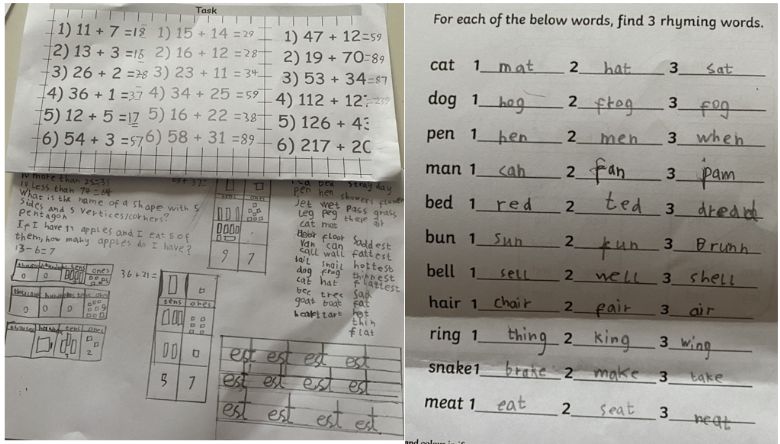 Task
1) 11 + 7 =18 1) 15 + 14 =29 1) 47 + 12=59
2) 13 + 3 =16 2) 16 + 12 =28 2) 19 + 70=89
3) 26 + 2 =28 3) 23 + 11 =34 3) 53 + 34=87
4) 36 + 1 =37 4) 34 + 25 =59 4) 112 + 12
5) 12 + 5 =17 5) 16 + 22 =38 5) 126 + 43
6) 54 + 3 =57 6) 58 + 31 =89 6) 217 + 20
10 less than
What is the name of a shape with 5
sides and 5 vertices/corners?
Pentagon
If I have 13 apples and I eat 6 of
them, how many apples do I have?
13-6=7
tens ones
9 7
ones
0 0
36+21=
tens ones
5 7
stray day
pen hen showers
Jet wet pass grass
Leg peg
cat mat
floor saddest
van can fattest
call wall hottest
tail snail thinnest
dog frog flattest
cat hat sad
tree fat
goat boat hot
thin
flat
est est est est
est est est est
est est est est
For each of the below words, find 3 rhyming words.
cat 1 mat 2 hat 3 sat
dog 1 hog 2 frog 3 fog
pen 1 hen 2 men 3 when
man 1 can 2 fan 3 pam
bed 1 red 2 ted 3
bun 1 sun 2 run 3
bell 1 sell 2 well 3 shell
hair 1 chair 2 pair 3 air
ring 1 thing 2 king 3 wing
snake1 brake 2 make 3 take
meat 1 eat 2 seat 3 neat